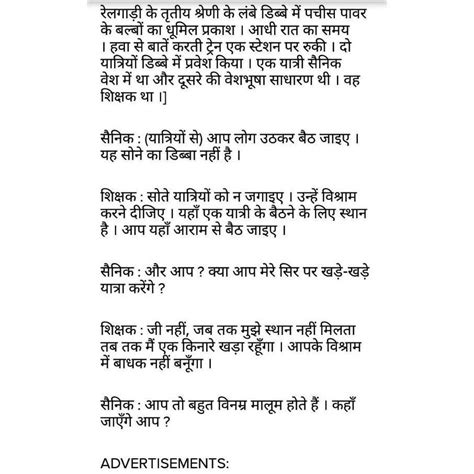 रेलगाड़ी के तृतीय श्रेणी के लंबे डिब्बे में पचीस पावर
के बल्बों का धूमिल प्रकाश । आधी रात का समय
। हवा से बातें करती ट्रेन एक स्टेशन पर रुकी । दो
यात्रियों डिब्बे में प्रवेश किया । एक यात्री सैनिक
वेश में था और दूसरे की वेशभूषा साधारण थी । वह
शिक्षक था ।]
सैनिक : (यात्रियों से) आप लोग उठकर बैठ जाइए ।
यह सोने का डिब्बा नहीं है ।
शिक्षक : सोते यात्रियों को न जगाइए । उन्हें विश्राम
करने दीजिए । यहाँ एक यात्री के बैठने के लिए स्थान
है । आप यहाँ आराम से बैठ जाइए ।
सैनिक : और आप ? क्या आप मेरे सिर पर खड़े-खड़े
यात्रा करेंगे ?
शिक्षक : जी नहीं, जब तक मुझे स्थान नहीं मिलता
तब तक मैं एक किनारे खड़ा रहूँगा । आपके विश्राम
में बाधक नहीं बनूँगा ।
सैनिक : आप तो बहुत विनम्र मालूम होते हैं । कहाँ
जाएँगे आप ?
ADVERTISEMENTS: